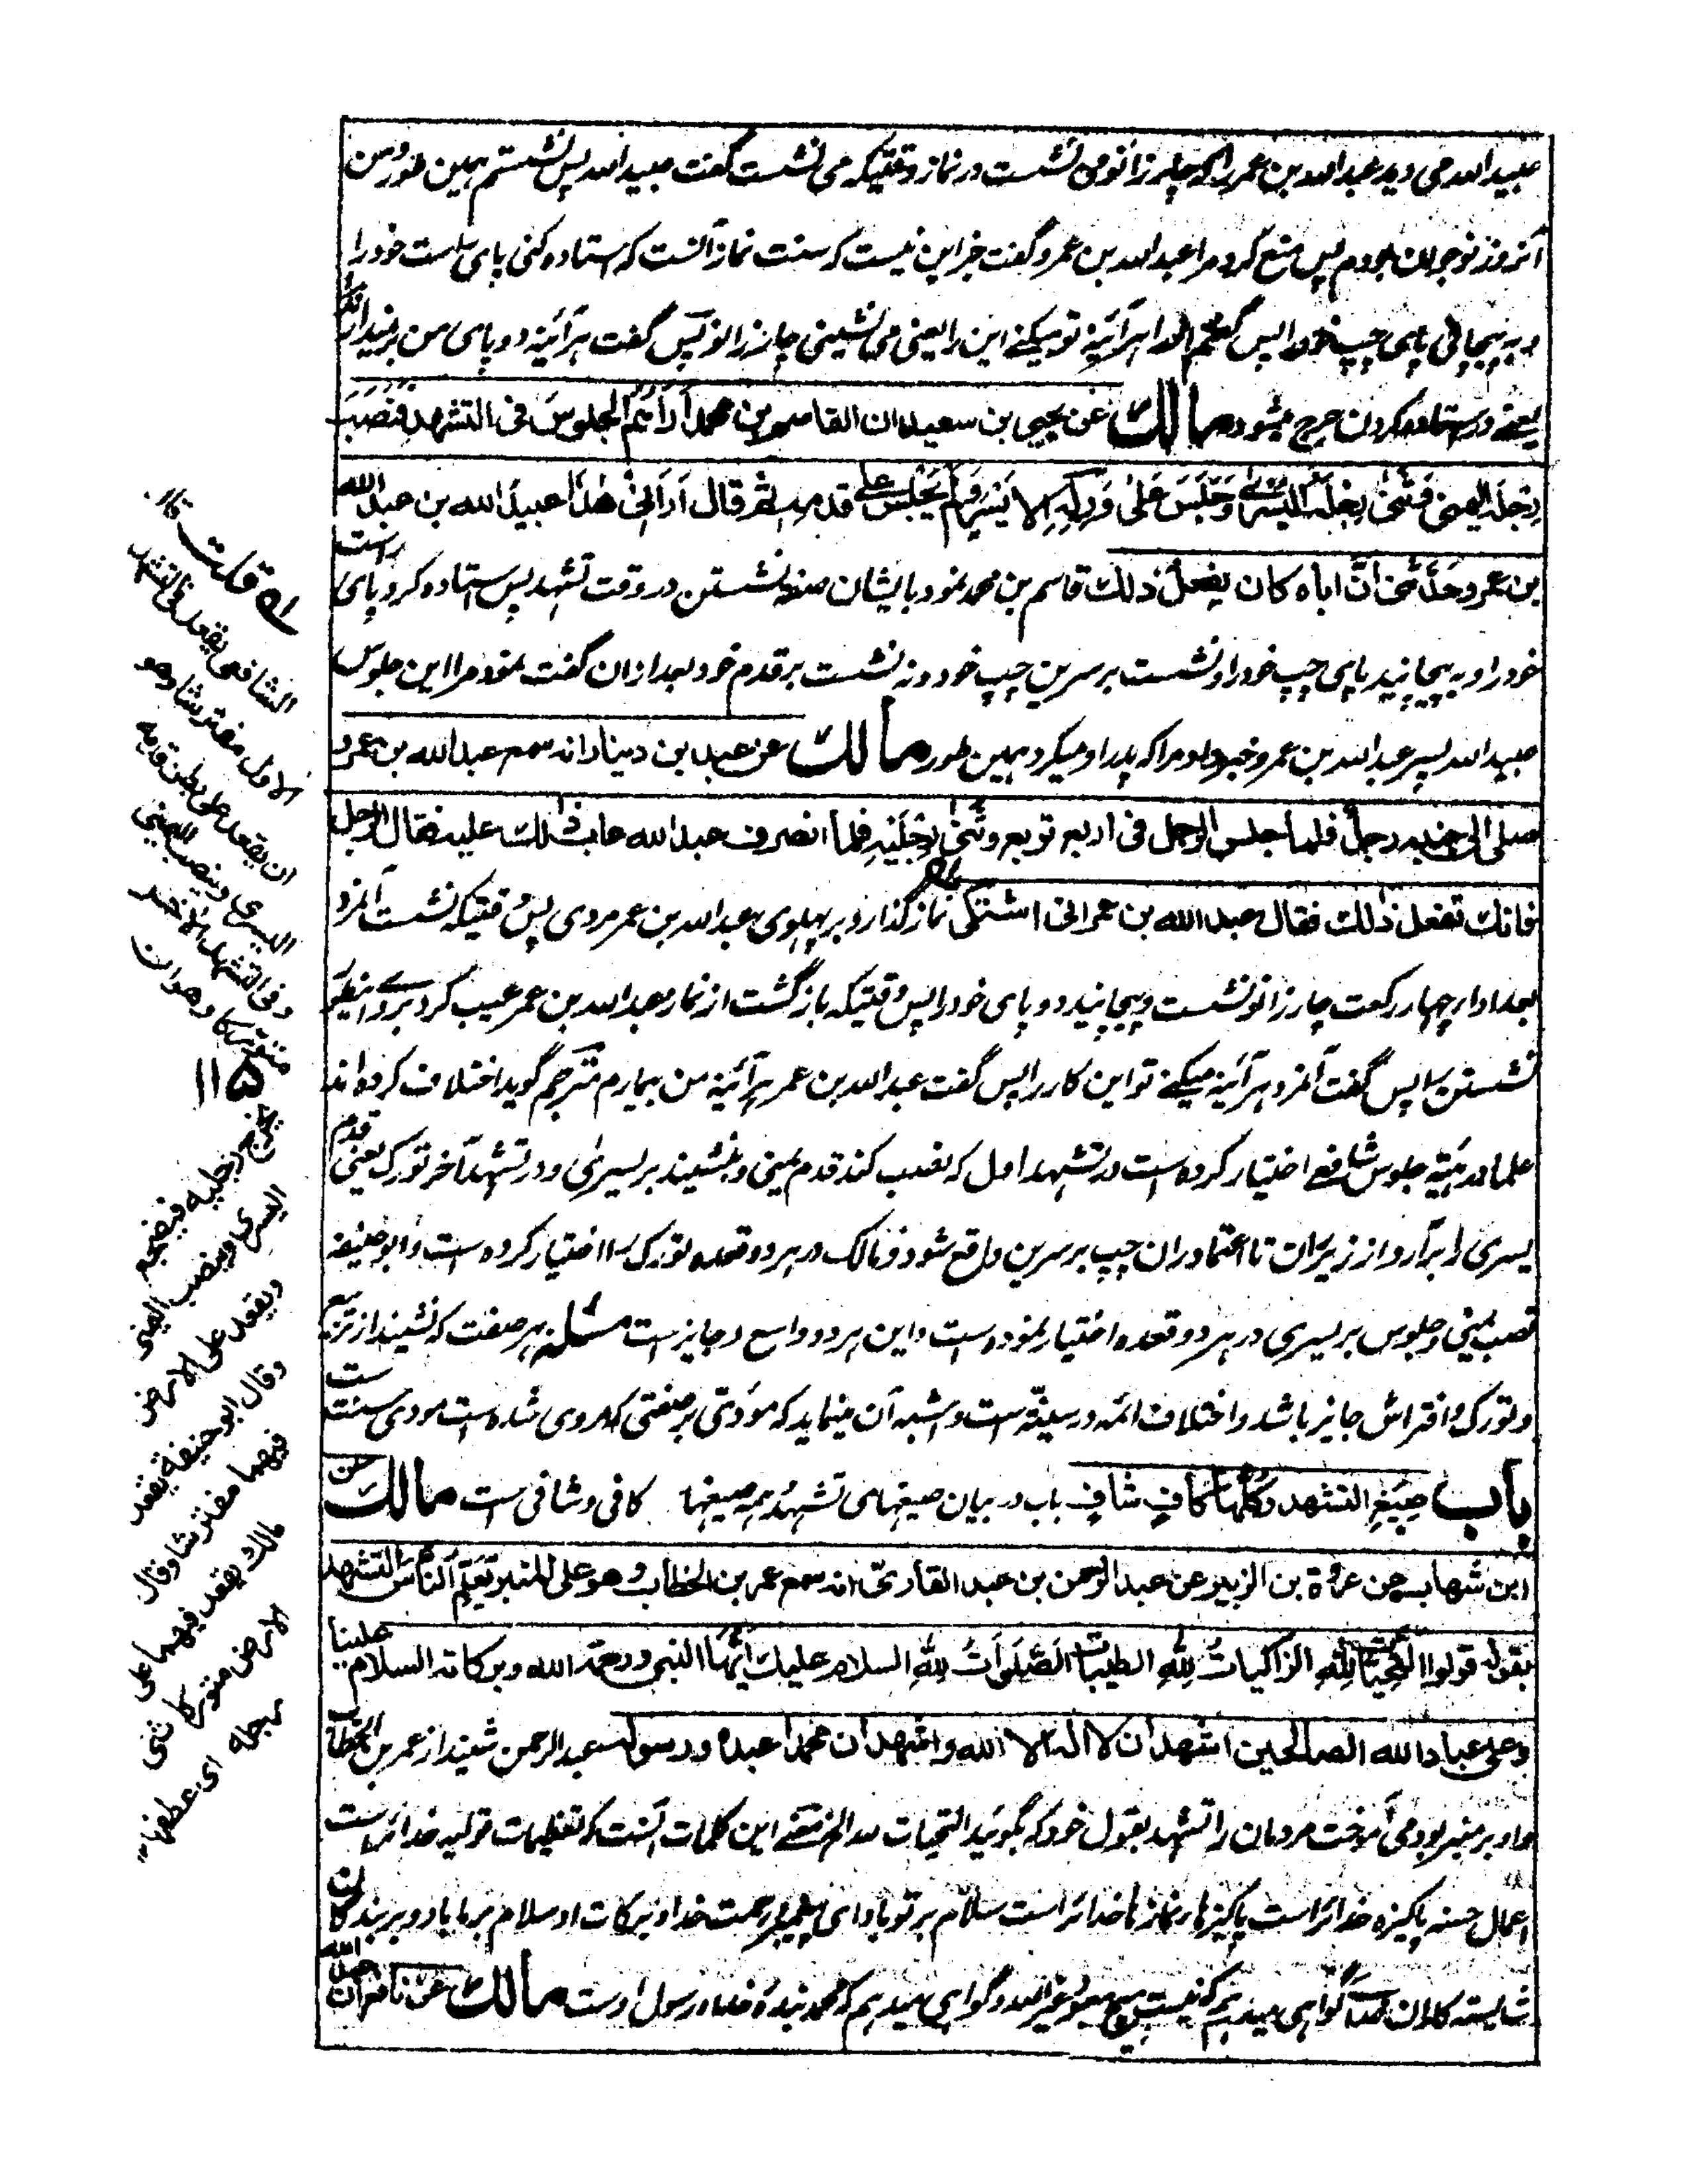 عبیدالله می دید عبدالله بن عمر را که چار زانو می نشست در نماز وقتیکه می نشست گفت عبیدالله پس نشستم بهمین طور و من
آنروز نوجوان بودم پس منع کرد مرا عبدالله بن عمر و گفت جز این نیست که سنت نماز آنست که استاده کنی پای راست خود را
و به پیچانی پای چپ خود را پس گفتم او را هر آئینه تو میکنے این را یعنی می نشینی چار زانو پس گفت هر آئینه دو پای من بر نمیدارند
یعنے در استاده کردن حرج میشود مالك عن یحیی بن سعید ان القاسم بن محمد أراهم الجلوس فی التشهد فنصب
رجله الیمنی وثنی رجله الیسری وجلس علی ورکه الایسر ولم یجلس علی قدمه ثم قال أرانی هذا عبید الله بن عبد الله
بن عمر وحدثنی أنّ اباه کان یفعل ذلك قاسم بن محمد نمود بایشان صفة نشستن در وقت تشهد پس استاده کرد پای راست
خود را و به پیچانید پای چپ خود را و نشست بر سرین چپ خود و نه نشست بر قدم خود بعد ازان گفت نمود مرا این جلوس
عبید الله پسر عبدالله بن عمر و خبر داد مرا که پدر او میکرد بهمین طور مالك عن عبد الله بن دینار انه سمع عبد الله بن عمر و
صلی الی جنبه رجل فلما جلس الرجل فی اربع تربع وثنی رجلیه فلما انصرف عبد الله عاب ذلك علیه فقال الرجل
فانك تفعل ذلك فقال عبد الله بن عمر انی اشتکی نماز گذارد بر پهلوی عبدالله بن عمر مردی پس وقتیکه نشست آنمرد
بعد ادای چهار رکعت چار زانو نشست و پیچانید دو پای خود را پس وقتیکه بازگشت از نماز عبدالله بن عمر عیب کرد بروے اینطور
نشستن را پس گفت آنمرد هر آئینه میکنے تو این کار را پس گفت عبدالله بن عمر هر آئینه من بیمارم مترجم گوید اختلاف کرده اند
علما در هیئة جلوس شافعے اختیار کرده است در تشهد اول که نصب کند قدم یمنی و بنشیند بر یسری و در تشهد آخر تورک یعنی قدم
یسری را برآرد از زیر ران تا اعتماد ران چپ بر سرین واقع شود و مالک در هر دو قعده تورک را اختیار کرده است و ابو حنیفه
نصب یمنی و جلوس بر یسری در هر دو قعده اختیار نموده است و این هر دو واسع و جایز است مسئله بهر صفت که نشیند از تربیع
و تورک و افتراش جایز باشد و اختلاف ائمه در سنیّة است و اشبه آن مینماید که مؤدی بر صفتی که مروی شده است مودی سنت است
باب صیغ التشهد وکلها کاف شاف باب در بیان صیغهای تشهد و همه صیغها کافی و شافی ست مالك عن
ابن شهاب عن عروة بن الزبیر عن عبد الرحمن بن عبد القاریّ انه سمع عمر بن الخطاب وهو علی المنبر یعلم الناس التشهد
یقول قولوا التحیات لله الزاکیات لله الطیبات الصلوات لله السلام علیك أیها النبی ورحمة الله وبرکاته السلام علینا
وعلی عباد الله الصالحین اشهد ان لا اله الا الله واشهد ان محمدا عبده ورسوله عبدالرحمن شنید از عمر بن الخطاب
و او بر منبر بود می آموخت مردمان را تشهد بقول خود که بگوئید التحیات لله الخ معنے این کلمات آنست که تعظیمات قولیه خدائراست
اعمال حسنه پاکیزه خدائراست پاکیزها و نمازها خدائراست سلام بر تو باد ای پیغمبر و رحمت خدا و برکات او سلام بر ما باد و بر بندگان
شایسته کاران خدا گواهی میدهم که نیست هیچ معبود غیر الله و گواهی میدهم که محمد بنده خدا و رسول اوست مالك عن نافع ان عبد الله
له قلت قال
الشافعی یقعد فی التشهد
الاول مفترشا وهو
ان یقعد علی بطن قدمه
الیسری وینصب الیمنی
وفی التشهد الاخیر
متورکا وهو ان
۱۱۵
یخرج رجلیه فیضجع
الیسری وینصب الیمنی
ویقعد علی الارض
وقال ابو حنیفة یقعد
فیهما مفترشا وقال
مالك یقعد فیهما علی
الارض متورکا ثنی
رجله ای عطفها